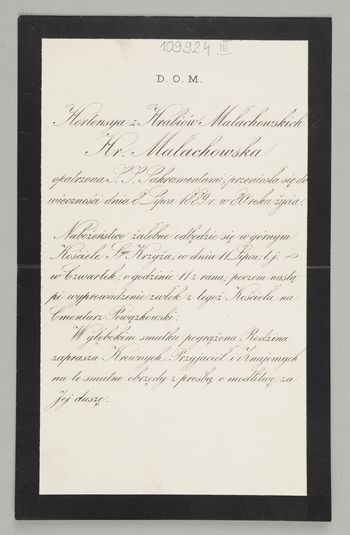 109924 III
D. O. M.
Hortensya z Hrabiów Małachowskich
Hr. Małachowska
opatrzona Ś.Ś. Sakramentami przeniosła się do
wieczności dnia 8 Lipca 1889 r. w 80 roku życia.
Nabożeństwo żałobne odbędzie się w górnym
Kościele Sgo Krzyża, w dniu 11 Lipca t.j.
w Czwartek, o godzinie 11 z rana, poczem nastą-
pi wyprowadzenie zwłok z tegoż Kościoła na
Cmentarz Powązkowski.
W głębokim smutku pogrążona Rodzina
zaprasza Krewnych, Przyjaciół i Znajomych
na te smutne obrzędy z prośbą o modlitwę za
Jej duszę.